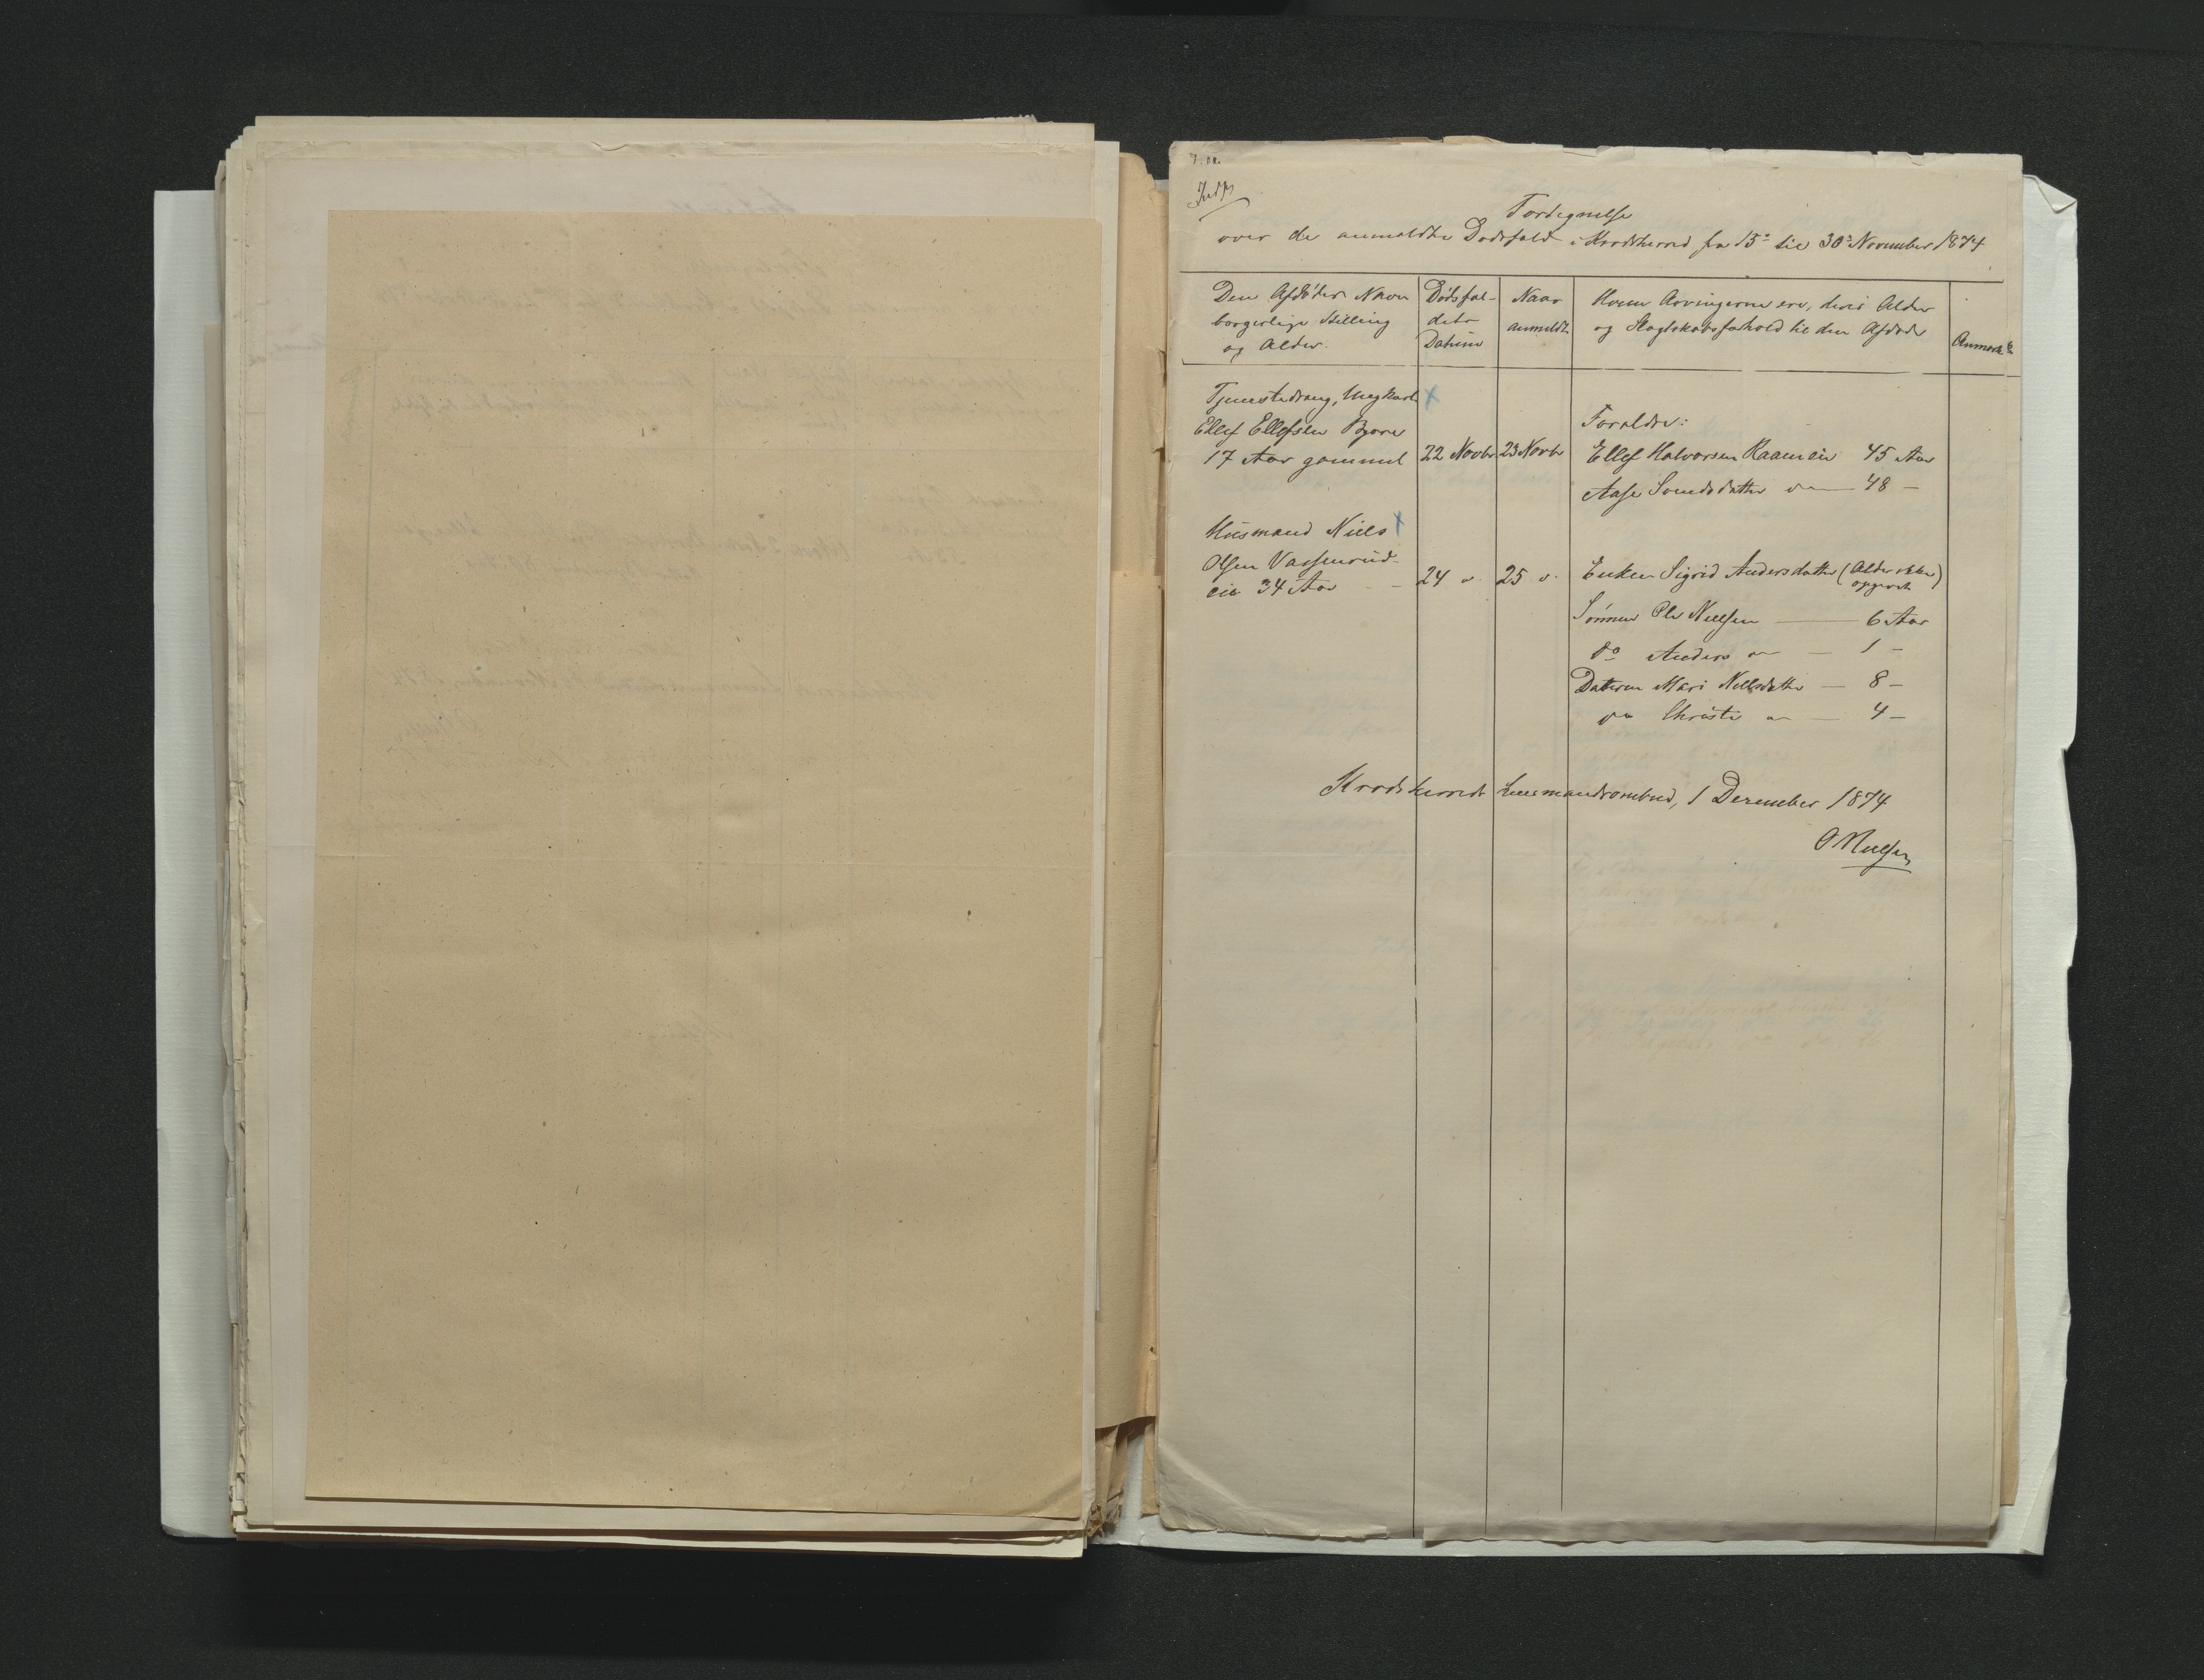 Fortegnelse
over de anmeldte Dødsfald i Krødsherred fra 15de til 30te November 1874
Den Afdødes Navn
borgerlige Stilling
og Alder.
Dødsfal-
dets
Datum
Naar
anmeldt.
Hvem Arvingerne ere, deres Alder
og Slagtskabsforhold til den Afdøde
Anmærk.
Tjenestedreng, Ungkarl
Ellef Ellefsen Bjøre
17 Aar gammel
22 Novbr
23 Novbr
Forældre:
Ellef Halvorsen Raamein 45 Aar
Aase Svendsdatter do — 48 —
Husmand Niels
Olsen Vassenrud-
eie 34 Aar
24 do
25 do
Enken Sigrid Andersdatter (Alder ikke
opgivet)
Sønnen Ole Nielsen — 6 Aar
do Anders do — 1 —
Datteren Mari Nielsdatter — 8 —
do Christi do — 4 —
Krødsherreds Lensmandsombud, 1 December 1874
O Nielsen